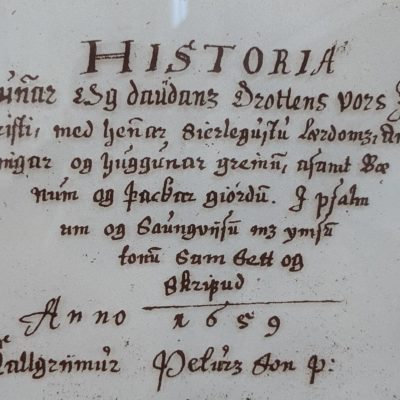 HISTORIA
uñar og daüdanz Drottens vors
risti, med heñar sierlegustu lærdoms, An
ningar og huggunar greinū, asamt Bæ
num og þackar giórdū. I psalm
um og Saungvijsū mz ymsū
tonū Sam Sett og
Skrifud
Anno 1659
Hallgrijmür Petürs Son p: